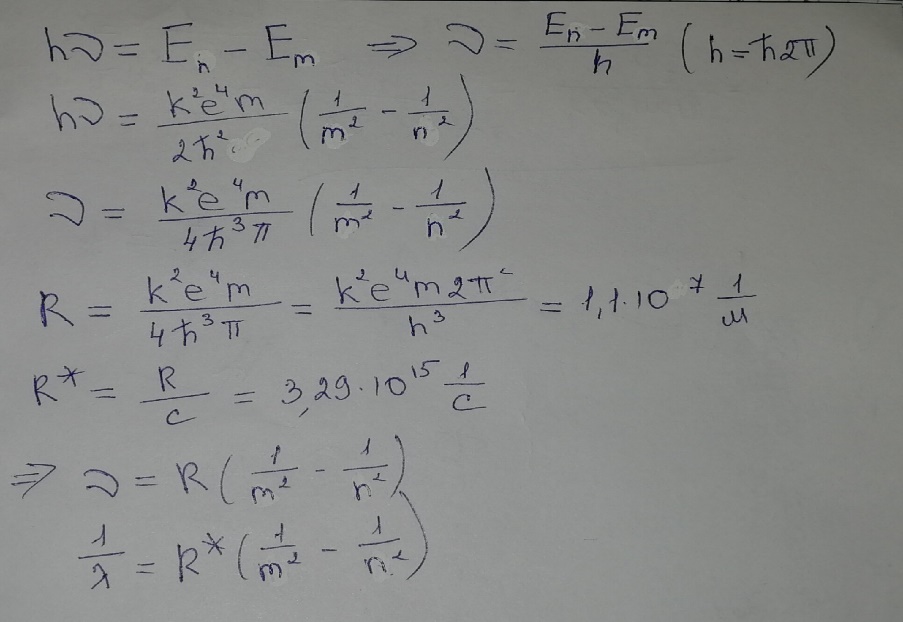 hν = Eₙ − Eₘ ⇒ ν = (Eₙ − Eₘ)/h (h = ħ2π)
hν = k²e⁴m/2ħ² (1/m² − 1/n²)
ν = k²e⁴m/4ħ³π (1/m² − 1/n²)
R = k²e⁴m/4ħ³π = k²e⁴m2π²/h³ = 1,1·10⁷ 1/м
R* = R/c = 3,29·10¹⁵ 1/с
⇒ ν = R(1/m² − 1/n²)
1/λ = R*(1/m² − 1/n²)